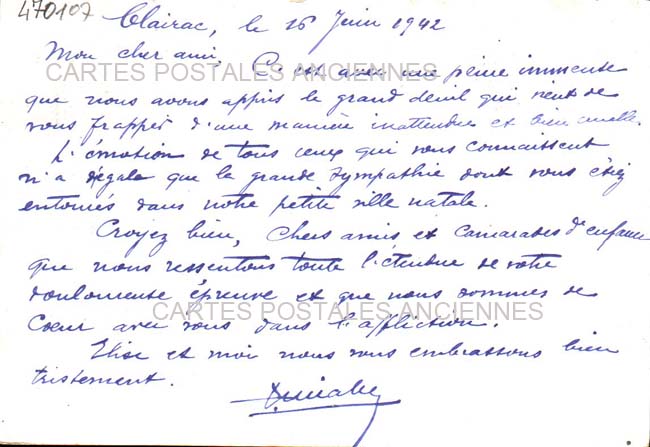 470107
Clairac, le 16 Juin 1942
Mon cher ami, C'est avec une peine immense
CARTES POSTALES ANCIENNES
que nous avons appris le grand deuil qui vient de
vous frapper d'une manière inattendue et bien cruelle.
L'émotion de tous ceux qui vous connaissent
n'a d'égale que la grande sympathie dont vous étiez
entourés dans notre petite ville natale.
Croyez bien, chers amis et camarades d'enfance
que nous ressentons toute l'étendue de votre
douloureuse épreuve et que nous sommes de
CARTES POSTALES ANCIENNES
Coeur avec vous dans l'affliction.
Elise et moi nous vous embrassons bien
tristement.